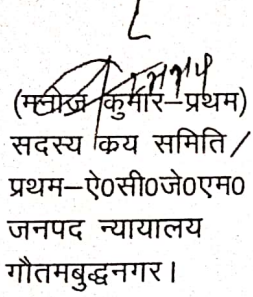 (मनोज कुमार–प्रथम)
सदस्य कय समिति /
प्रथम–ऐ०सी०जे०एम०
जनपद न्यायालय
गौतमबुद्धनगर।